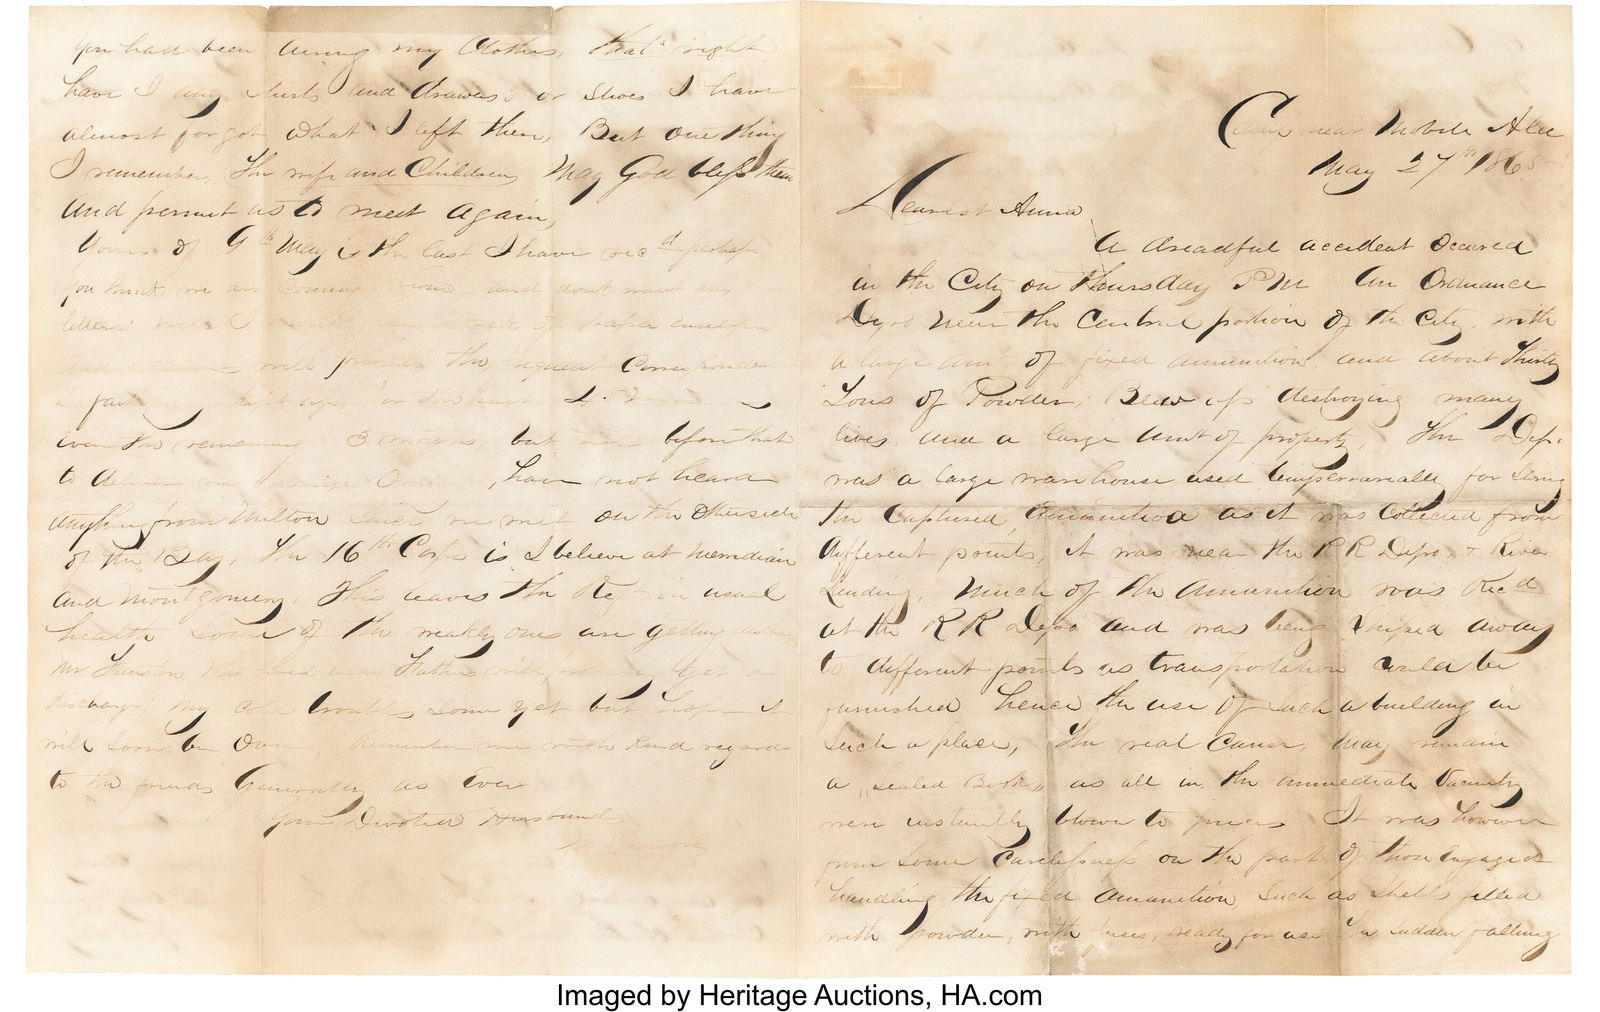 Camp near Mobile Ala
May 27th 1865
Dearest Anna
A dreadful accident occured
in the City on Thursday P M An Ordnance
Depo near the Central portion of the City, with
a large amt of fixed amunition and about Thirty
Tons of Powder, Blew up destroying many
lives and a large amt of property, The Depo
was a large warehouse used temperraraily for storing
the Captured Amunition as it was Collected from
different points, it was near the R R Depo & River
Landing, Much of the Amunition was Recd
at the R R Depo and was being Shiped away
to different points as transportation could be
furnished hence the use of such a building in
such a place, The real cause, may remain
a "Sealed Book" as all in the immediate vacinity
were instantly blown to pieces It was however
from some carelessness on the part of those engaged
handling the fixed amunition, such as shells filled
with powder, with fuses, ready for use The sudden falling
You had been airing my Clothes, that's right
have I any shirts and drawers, or shoes I have
almost forgot what I left there, But one thing
I remember, The wife and Children May God bless them
and permit us to meet again,
Yours of 9th May is the last I have recd perhaps
you think we are coming home and dont want any
letters
will the request Correspondence

even the remaining 3 months, but before that
to have not heard
anything from Milton since we met on the otherside
of the Bay, The 16th Corps is I believe at Meridian
and Montgomery, This leaves the Regt in usual
health Some of the weakly ones are getting
Mr who lived near Fathers will get a
discharge, My cold troubles some yet but hope it
will soon be over, Remember me with kind regards
to the friends Generally as Ever
Your Devoted Husband
Imaged by Heritage Auctions, HA.com